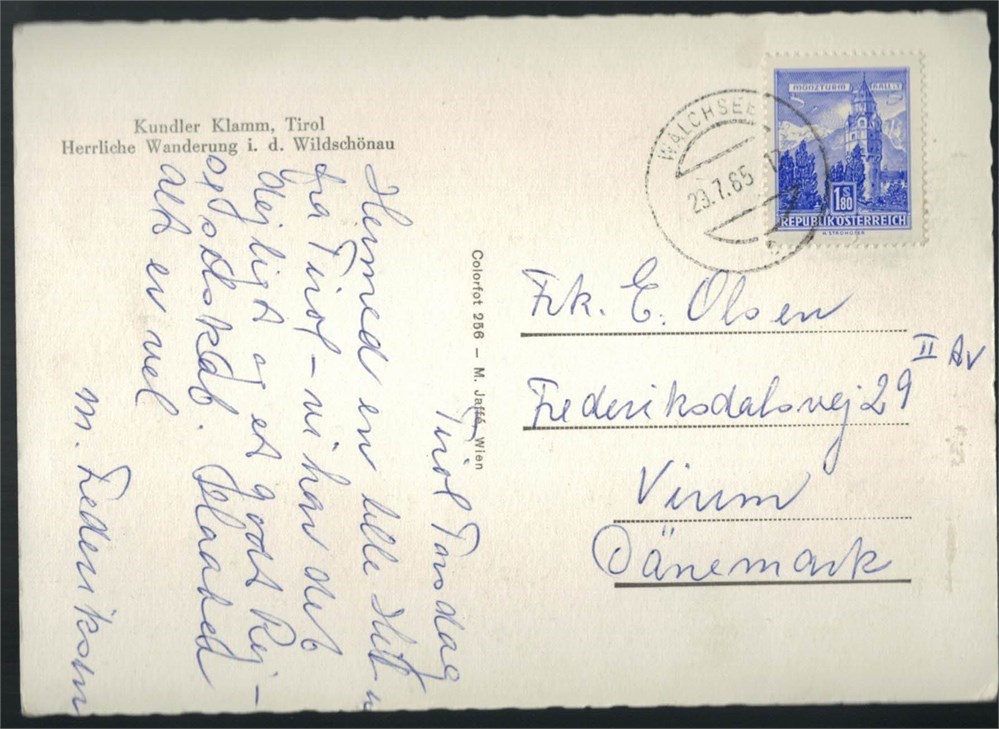 Kundler Klamm, Tirol
Herrliche Wanderung i. d. Wildschönau
WALCHSEE
29.7.65
MÜNZTURM HALL i T
1 S 80
REPUBLIK ÖSTERREICH
Colorfot 256 — M. Jaffé, Wien
Frk. E. Olsen
Frederiksdalsvej 29 II
Virum
Dänemark
Tirol Torsdag
Hermed en lille
fra Tirol - vi har det
dejligt og et godt Rej-
seselskab.
alt er vel
M. Frederiksen